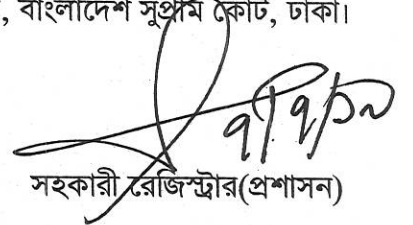 , বাংলাদেশ সুপ্রীম কোর্ট, ঢাকা।
সহকারী রেজিস্ট্রার(প্রশাসন)